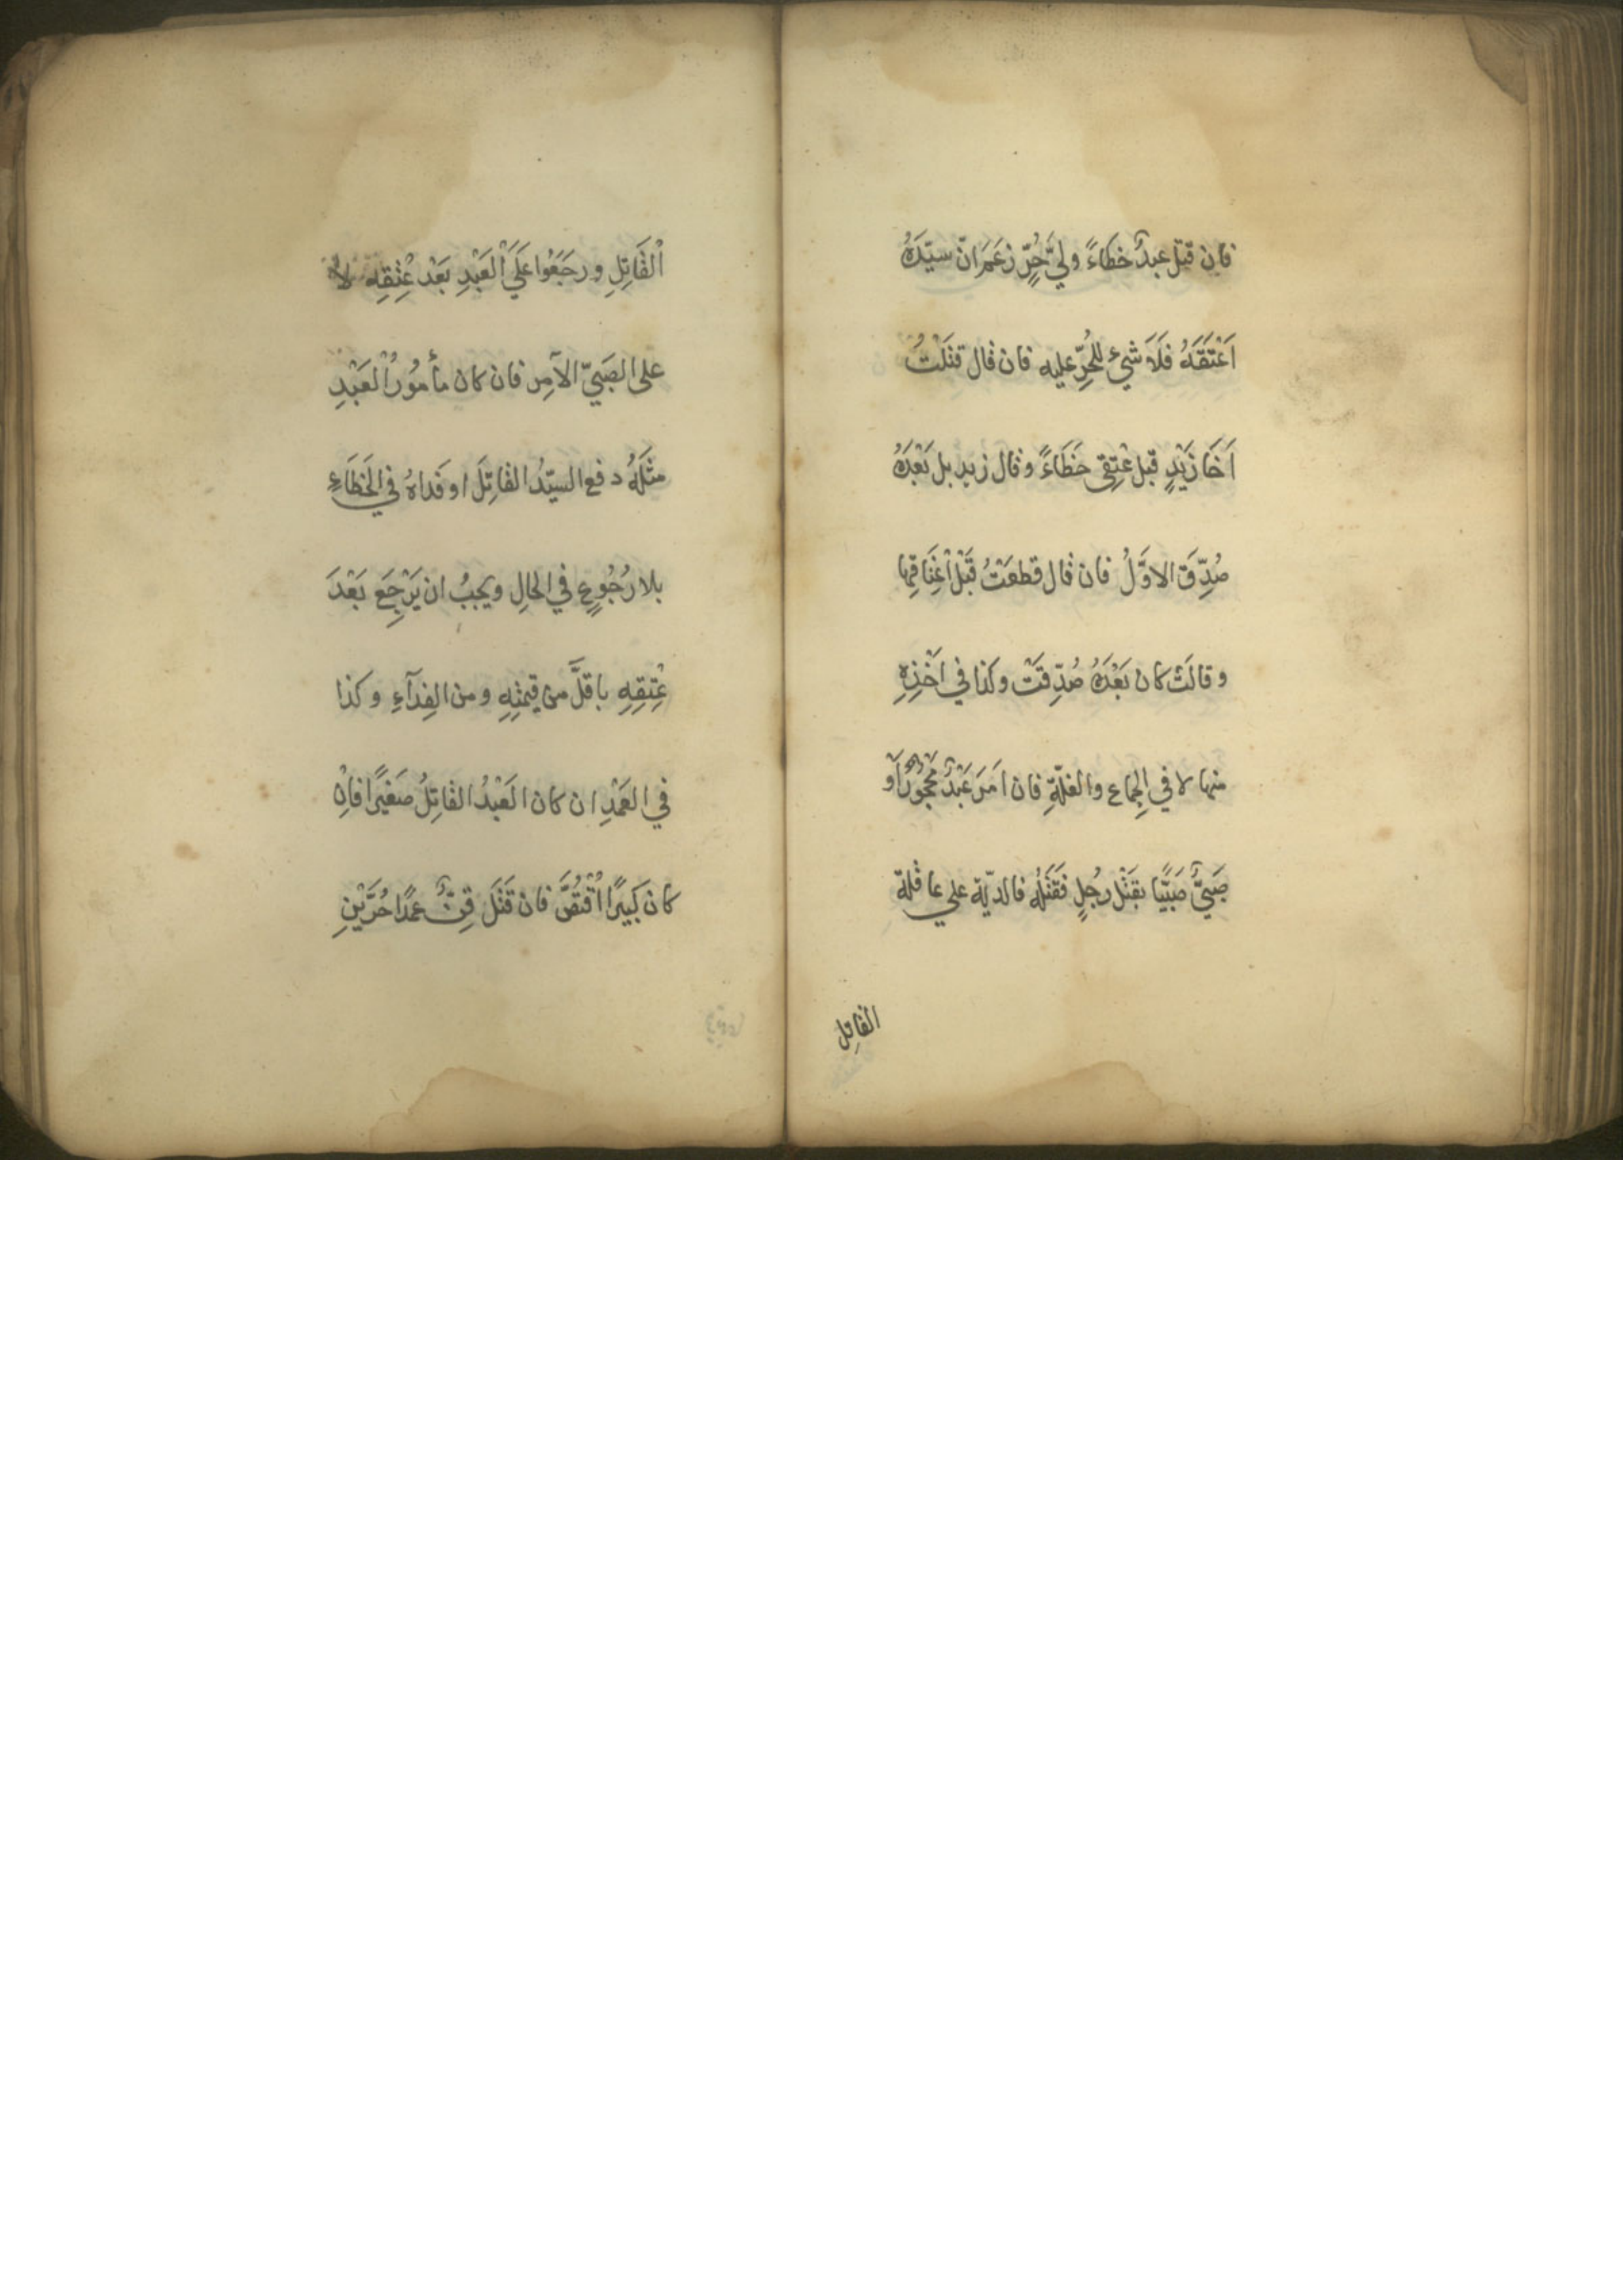 فان قتل عبدٌ خطاءً وليَّ حُرٍّ زعَمَ انّ سيّدَهُ
اَعْتَقَهُ فَلَا شيءَ للحُرِّ عليه فان قال قتَلْتُ
اَخَا زَيْدٍ قبل عْتِقى خَطَاءً وقال زيد بل بَعْدَهُ
صُدِّقَ الاوَّلُ فان قال قطعَتُ قَبْلَ اعْتَاقِها
وقالَتْ كان بَعْدَهُ صُدِّقَتْ وكذا في اَخْذِهِ
منها لا في الجِماع والغلّةِ فان اَمَرَ عَبْدٌ مَحْجُوْرٌ اَوْ
صَبِيٌّ صَبِيًّا بقَتْل رجُلٍ فَقَتَلَهُ فالديّة على عاقلة
القاتِل
اْلقَاتِلِ ورجَعُوا عَلَى اْلعَبْدِ بَعْد عْتِقِه لاٰ
على الصَبِيّ الآمِر فان كان مأمُورُ اْلعَبْدِ
مثلَهُ دفع السيّدُ القاتِلَ او فَداهُ في الخَطَاءِ
بلا رُجُوعٍ في الحالِ ويجبُ ان يَرْجِعَ بَعْدَ
عْتِقِهِ باقلَّ من قِيمتِهِ ومن الفِدَآءِ وكذا
في العَمْدِ ان كان العَبْدُ القاتِلُ صَغيرًا فاِنْ
كان كَبيرًا اُقْتُصَّ فان قَتَلَ قِنٌّ عَمدًا حُرَّيْنِ